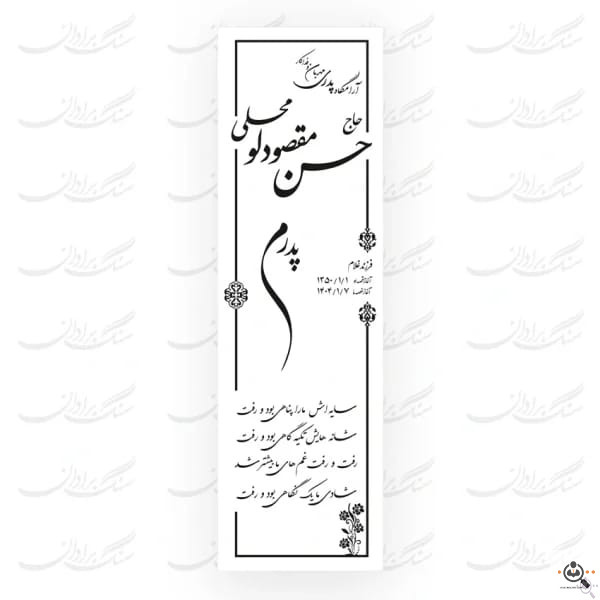 آرامگاه پدری مهربان و فداکار
حاج
حسن مقصودلو محلی
پدرم
فرزند غلام
۱۳۵۰/۱/۱
۱۴۰۴/۱/۷
سایه اش ما را پناهی بود و رفت
شانه هایش تکیه گاهی بود و رفت
رفت و رفت غم های ما بیشتر شد
شادی ما یک نگاهی بود و رفت
سنگ برادران